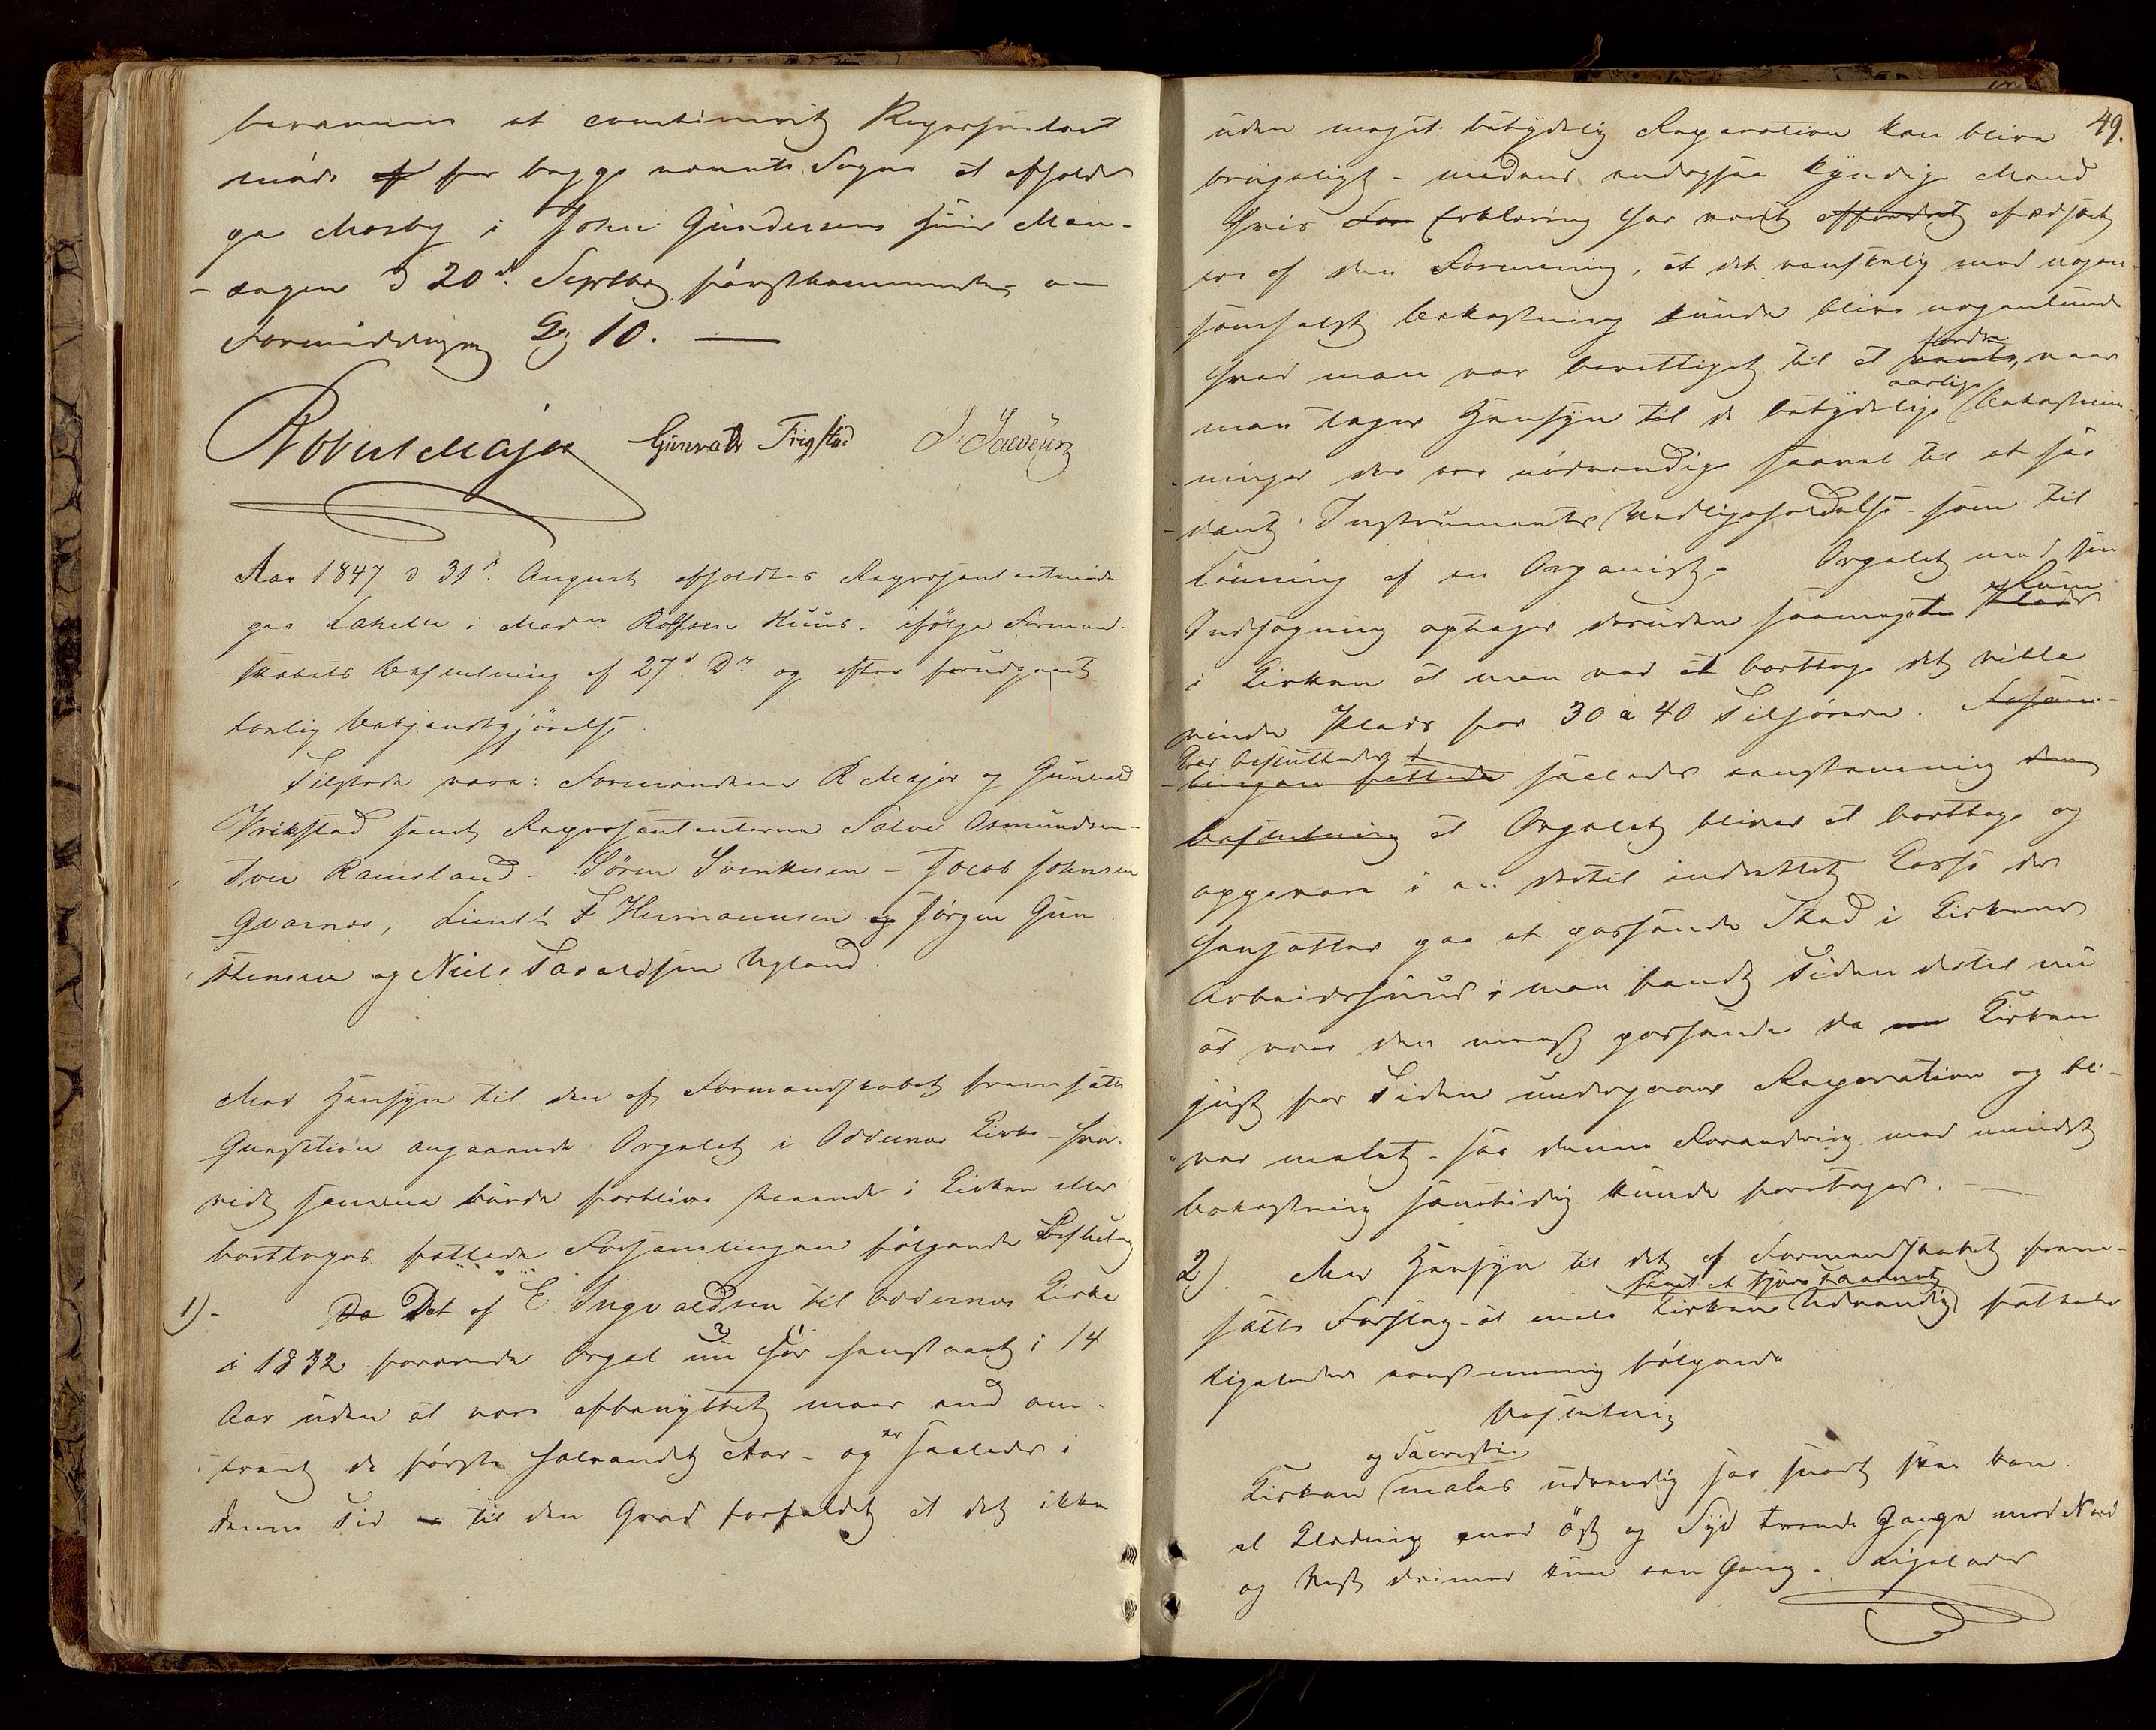 berammes et combinerit Repræsentant
møde af for begge nævnte Sogne at afholde
paa Mosby i John Gundersens Huus Man-
-dagen d 20d. Septbr førstkommende om
Formiddagen Kl 10. —
Robert Majer Gunvald Frigstad J. Jaeveün
Aar 1847 d 31t. August afholdtes Repræsentantmøde
paa Lahelle i Madm Rolfsen Huus - ifølge Formand-
skabets Beslutning af 27d. Dm og efter forudgaaet
lovlig Bekjendtgjørelse.
Tilstede vare: Formændene R Majer og Gunvald
Frikstad samt Repræsentanterne Salve Osmundsen -
Iver Ravnsland - Søren Svenkesen - Jacob Johnsen
Qvarnes, Lieut F Hermannsen og Jørgen Gun
stensen og Niels Taraldsen Ugland.
Med Hensyn til den af Formandskabet fremsatte
Question angaaende Orgelet i Oddernæs Kirke - hvor-
vidt samme burde forblive staaende i Kirken eller
borttages fattede Forsamlingen følgende Beslutng
1)- Da Det af E Ingvaldsen til Oddernæs Kirke
i 1832 forærede Orgel nu har henstaaet i 14
Aar uden at være afbenyttet mere end om-
trent de første halvandet Aar - og er saaledes i
denne Tid til den Grad forfaldet at det ikke
49.
uden meget betydelig Reparation kan blive
brugeligt - medens endogsaa kyndige Mænd
hvis Erklæring har været affordret afæsket
ere af den Formening, at det vanskelig med nogen-
somhelst Bekostning kunde blive nogenlunde
fordre
hvad man var berettiget til at vente, naar
aarlige
man tager Hensyn til de betydelige Bekostnin-
-ninger der ere nødvendige saavel til et saa
-dant Instruments Vedligeholdelse - som til
Lønning af en Organist - Orgelet med sin
Rum
Indhegning optager desuden saameget Plads
i Kirken at man ved at borttage det ville
vinde Plads for 30 a 40 Tilhørere. Forsam-
Der besluttedes
-lingen fattede saaledes eenstemmig den
Beslutning at Orgelet bliver at borttage og
oppevare i en dertil indrettet Kasse der
hensættes paa et passende Sted i Kirkens
Arbeidshuus i man fandt Tiden dertil nu
at være den meest passende da nu Kirken
just for Tiden undergaaer Reparation og bli-
-ver malet - saa denne Forandring med mindst
bekostning samtidig kunde foretages. —
2). Med Hensyn til det af Formandskabet frem-
samt at tjære Taarnet
satte Forslag - at male Kirken Udvendig fattedes
ligeledes eenstemmig følgende
Beslutning
og Sacrestie
Kirken males udvendig saa snart skee kan.
al Klædning mod Øst og Syd trende Gange mod Nord
og Vest derimod kun een Gang. - Ligeledes